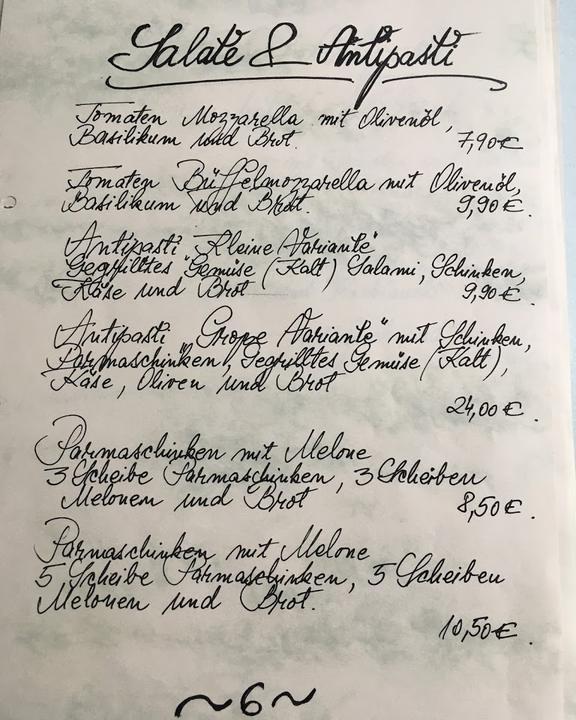 Salate & Antipasti
Tomaten Mozzarella mit Olivenöl,
Basilikum und Brot. 7,90€
Tomaten Büffelmozzarella mit Olivenöl,
Basilikum und Brot. 9,90€.
Antipasti "Kleine Variante"
Gegrilltes Gemüse (Kalt) Salami, Schinken,
Käse und Brot 9,90€.
Antipasti "Große Variante" mit Schinken,
Parmaschinken, Gegrilltes Gemüse (Kalt),
Käse, Oliven und Brot
24,00€.
Parmaschinken mit Melone
3 Scheibe Parmaschinken, 3 Scheiben
Melonen und Brot 8,50€.
Parmaschinken mit Melone
5 Scheibe Parmaschinken, 5 Scheiben
Melonen und Brot.
10,50€.
~6~